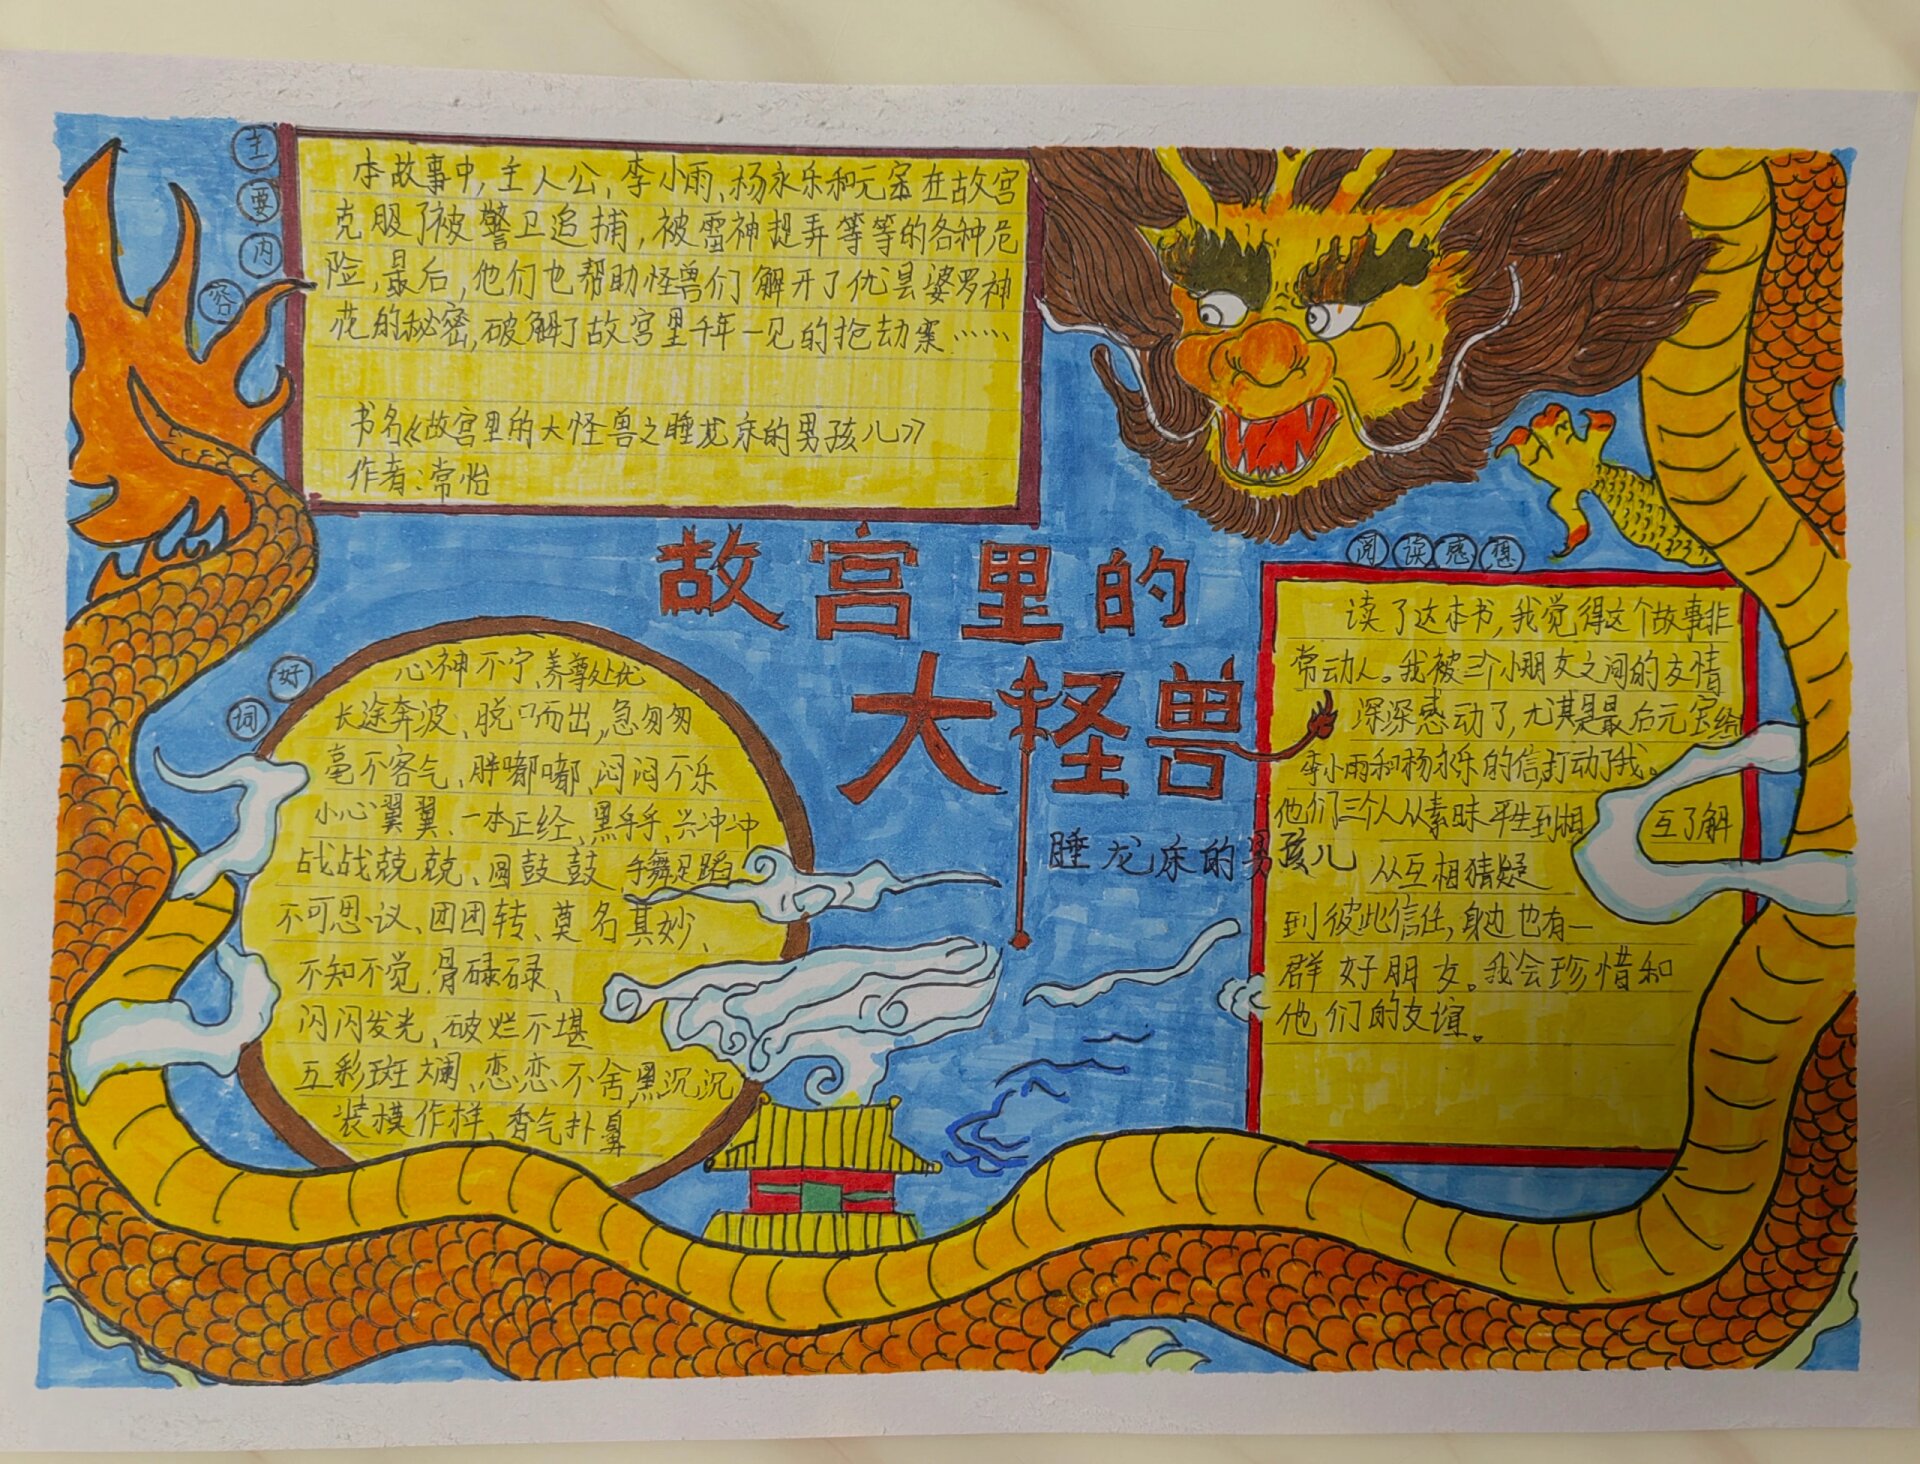 主要内容
本故事中,主人公、李小雨、杨永乐和元宝在故宫
克服了被警卫追捕,被雷神捉弄等等的各种危
险,最后,他们也帮助怪兽们解开了优昙婆罗神
花的秘密,破解了故宫里千年一见的抢劫案……
书名《故宫里的大怪兽之睡龙床的男孩儿》
作者:常怡
故宫里的
大怪兽
睡龙床的男孩儿
好词
心神不宁、养尊处优
长途奔波、脱口而出、急匆匆
毫不客气、胖嘟嘟、闷闷不乐
小心翼翼、一本正经、黑乎乎、兴冲冲
战战兢兢、圆鼓鼓 手舞足蹈
不可思议、团团转、莫名其妙、
不知不觉、骨碌碌、
闪闪发光、破烂不堪
五彩斑斓、恋恋不舍、黑沉沉
装模作样、香气扑鼻
阅读感想
读了这本书,我觉得这个故事非
常动人。我被三个小朋友之间的友情
深深感动了,尤其是最后元宝给
李小雨和杨永乐的信,打动了我。
他们三个人从素昧平生到相互了解
从互相猜疑
到彼此信任,身边也有一
群好朋友。我会珍惜和
他们的友谊。